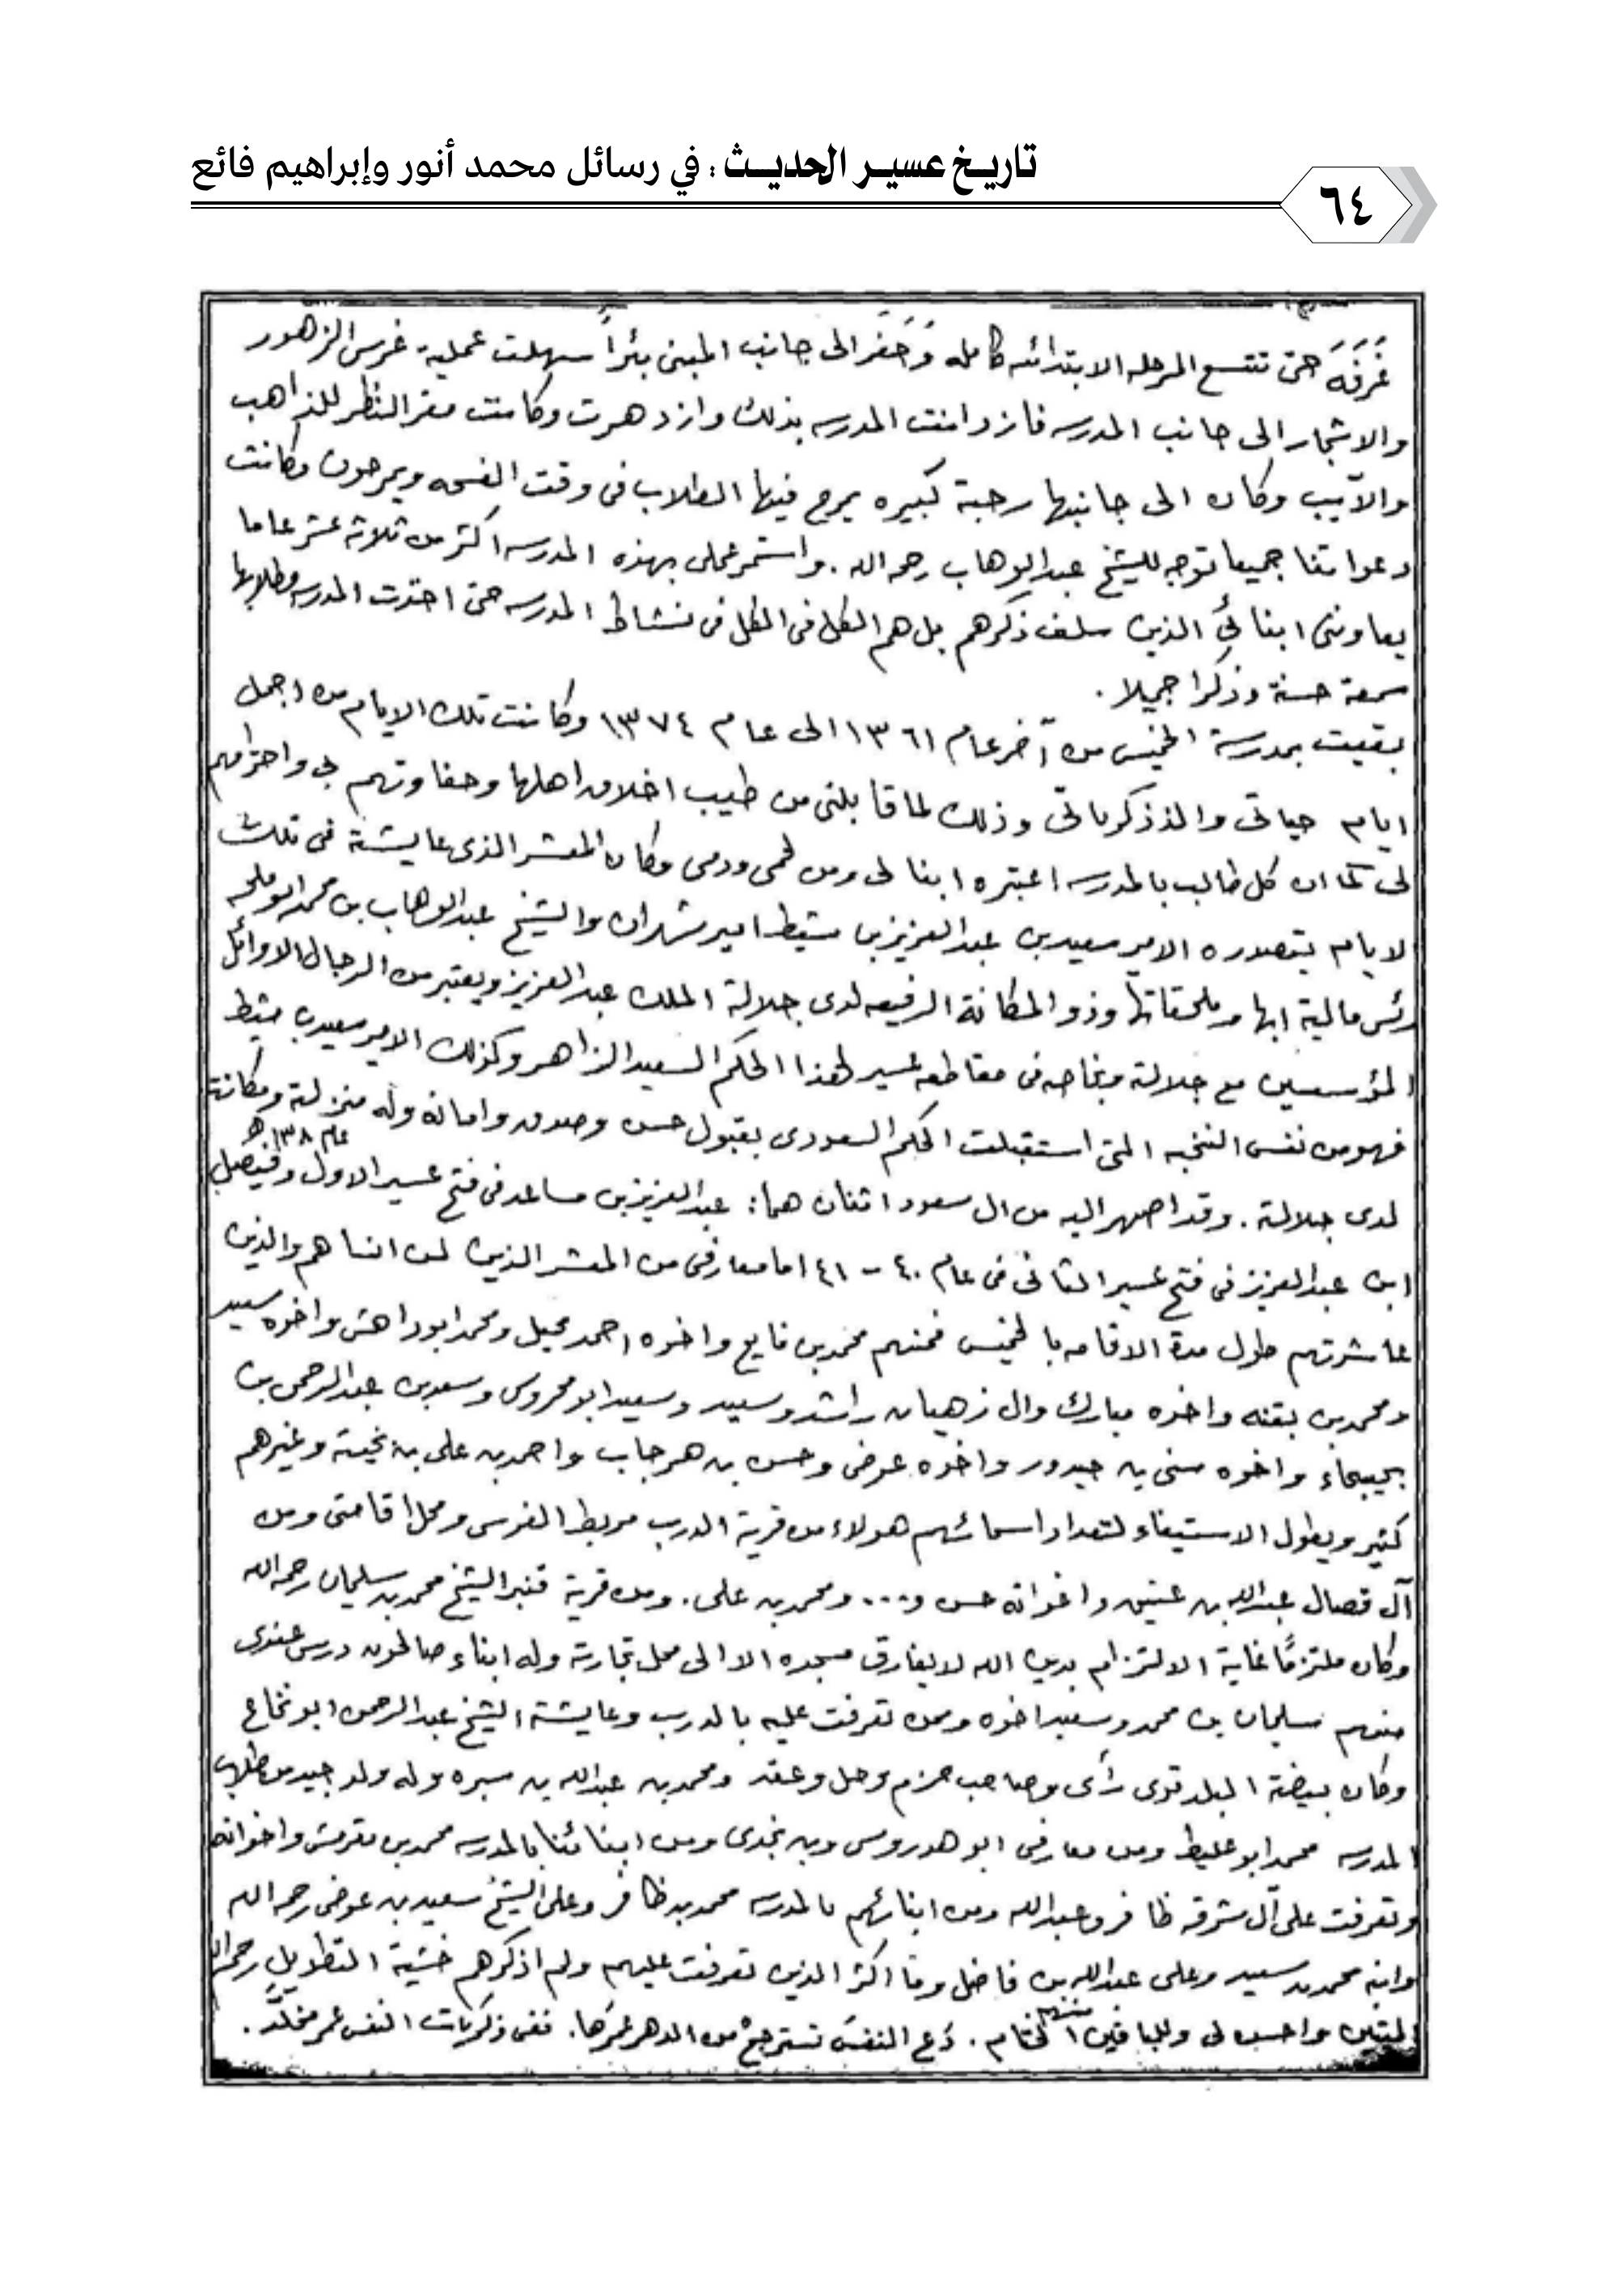 تاريخ عسير الحديث : في رسائل محمد أنور وإبراهيم فائع
٦٤
غرفة حتى تتسع المرحله الابتدائه كامله وَحَفَر الى جانب المبنى بئراً سهلت عملية غرس الزهور
والاشجار الى جانب المدرسه فازدانت المدرسه بذلك وازدهرت وكانت مقر النظر للذاهب
والآيب وكان الى جانبها رحبة كبيره يمرح فيها الطلاب فى وقت الفسحه ويمرحون وكانت
دعواتنا جميعا توجه للشيخ عبدالوهاب رحمه الله . واستمر عملى بهذه المدرسه اكثر من ثلاثة عشر عاما
يعاوننى ابنائى الذين سلف ذكرهم بل هم الكل فى الكل فى نشاط المدرسه حتى اخذت المدرسه وطلابها
سمعة حسنة وذكرا جميلا .
بقيت بمدرسة الخميس من آخر عام ١٣٦١ الى عام ١٣٧٤ وكانت تلك الايام من اجمل
ايام حياتى والذ ذكرياتى وذلك لما قابلنى من طيب اخلاق اهلها وحفاوتهم بى واحترامهم
لى كما ان كل طالب بالمدرسه اعتبره ابنا لى ومن لحمى ودمى وكان المعشر الذى عايشته فى تلك
الايام يتصدره الامير سعيد بن عبدالعزيز بن مشيط امير شهران والشيخ عبدالوهاب بن محمد ابو ملحه
رئس مالية ابها وملحقاتها وذو المكانة الرفيعه لدى جلالة الملك عبدالعزيز ويعتبر من الرجال الاوائل
المؤسسين مع جلالته وبخاصه فى مقاطعه عسير لهذا الحكم السعيد الزاهر وكذلك الامير سعيد بن مشيط
فهو من نفس النخبه التى استقبلت الحكم السعودى بقبول حسن وصدق وامانه وله منزلة ومكانة
لدى جلالته . وقد اصهر اليه من ال سعود اثنان هما : عبدالعزيز بن مساعد فى فتح عسير الاول عام ١٣٨هـ وفيصل
ابن عبدالعزيز فى فتح عسير الثانى فى عام ٤٠ - ٤١ اما معارفى من المعشر الذين لن انساهم والذين
عاشرتهم طول مدة الاقامه بالخميس فمنهم محمد بن فايع واخوه احمد محيل ومحمد ابو داهش واخوه سعيد
ومحمد بن بقنه واخوه مبارك وال زهيان راشد وسعيد وسعيد ابو محروس وسعد بن عبدالرحمن بن
واخوه مسفى بن حيدور واخوه عوض وحسن بن هرجاب واحمد بن على بن نحيته وغيرهم
كثير ويطول الاستيفاء لتعداد اسمائهم هولاء من قرية الدرب مربط الفرس ومحل اقامتى ومن
آل قصال عبدالله بن عنيس واخوانه حسن و ... ومحمد بن على . ومن قرية قنبر الشيخ محمد بن سليمان رحمه الله
وكان ملتزمًا غاية الالتزام بدين الله لا يفارق مسجده الا الى محل تجارته وله ابناء صالحون درس عندى
منهم سليمان بن محمد وسعيد اخوه وممن تعرفت عليه بالدرب وعايشته الشيخ عبدالرحمن ابو نخاع
وكان بيضة البلد قوى رأى وصاحب حزم وحل وعقد ومحمد بن عبدالله بن سبره وله ولد جيد من طلاب
المدرسه محمد ابو غليط ومن معارفى ابو هدروس وبن نجدى ومن ابنائنا بالمدرسه محمد بن مقرمش واخوانه
وتعرفت على آل مشرقه ظافر وعبدالله ومن ابنائهم بالمدرسه محمد بن ظافر وعلى الشيخ سعيد بن عوض رحمه الله
وابنه محمد بن سعيد وعلى عبدالله بن فاضل وما اكثر الذين تعرفت عليهم ولم اذكرهم خشية التطويل رحم الله
الميتين منهم واحسن لى وللباقين الختام . دَع النفسَ تسترجعْ من الدهر عُمرَها . ففى ذكريات النفس عمر مخلَّد .